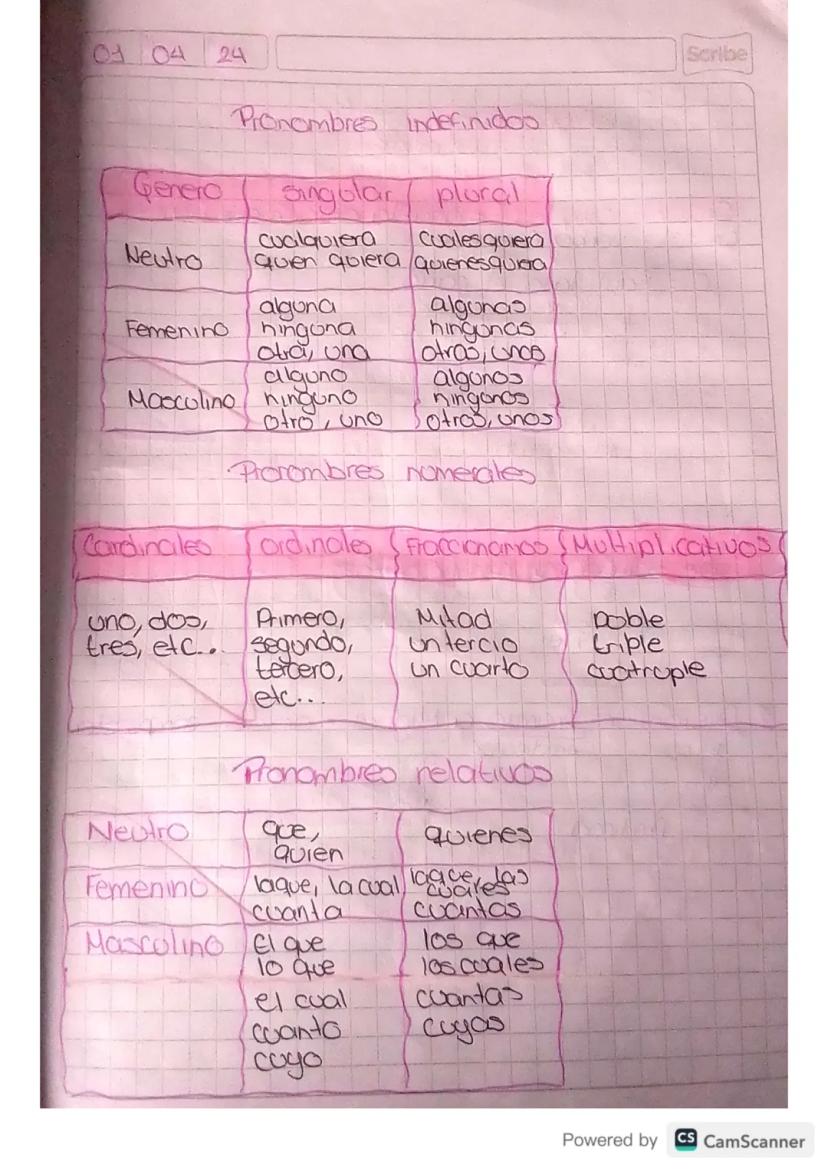 01 04 24
Scribe
Pronombres indefinidos
Genero singular plural
Neutro
cualquiera cualesquiera
quien quiera quienesquiera
Femenino
alguna algunas
ninguna ningunas
otra, una otras, unas
Masculino
alguno algunos
ninguno ningunos
otro, uno otros, unos
Pronombres numerales
Cardinales ordinales Fraccionarios Multiplicativos
uno, dos, Primero, Mitad Doble
tres, etc.. segundo, un tercio triple
tercero, un cuarto cuatruple
etc...
Pronombres relativos
Neutro que, quienes
quien
Femenino laque, la cual laque, las
cuales
cuanta cuantas
Masculino El que los que
lo que los cuales
el cual cuantas
cuanto cuyas
cuyo
Powered by CS CamScanner